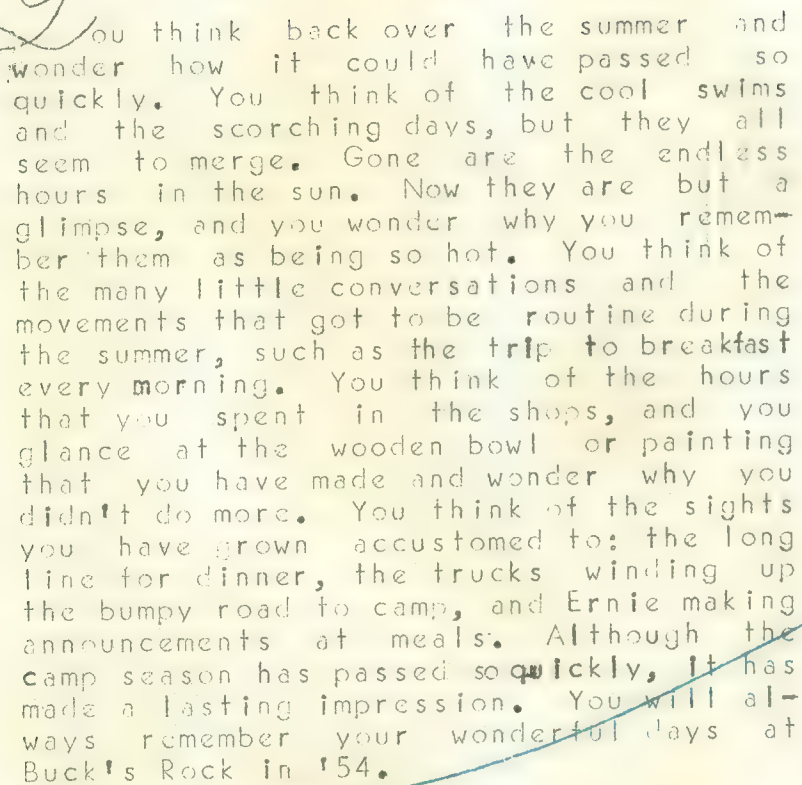 You think back over the summer and
wonder how it could have passed so
quickly. You think of the cool swims
and the scorching days, but they all
seem to merge. Gone are the endless
hours in the sun. Now they are but a
glimpse, and you wonder why you remem-
ber them as being so hot. You think of
the many little conversations and the
movements that got to be routine during
the summer, such as the trip to breakfast
every morning. You think of the hours
that you spent in the shops, and you
glance at the wooden bowl or painting
that you have made and wonder why you
didn't do more. You think of the sights
you have grown accustomed to: the long
line for dinner, the trucks winding up
the bumpy road to camp, and Ernie making
announcements at meals. Although the
camp season has passed so quickly, it has
made a lasting impression. You will al-
ways remember your wonderful days at
Buck's Rock in '54.